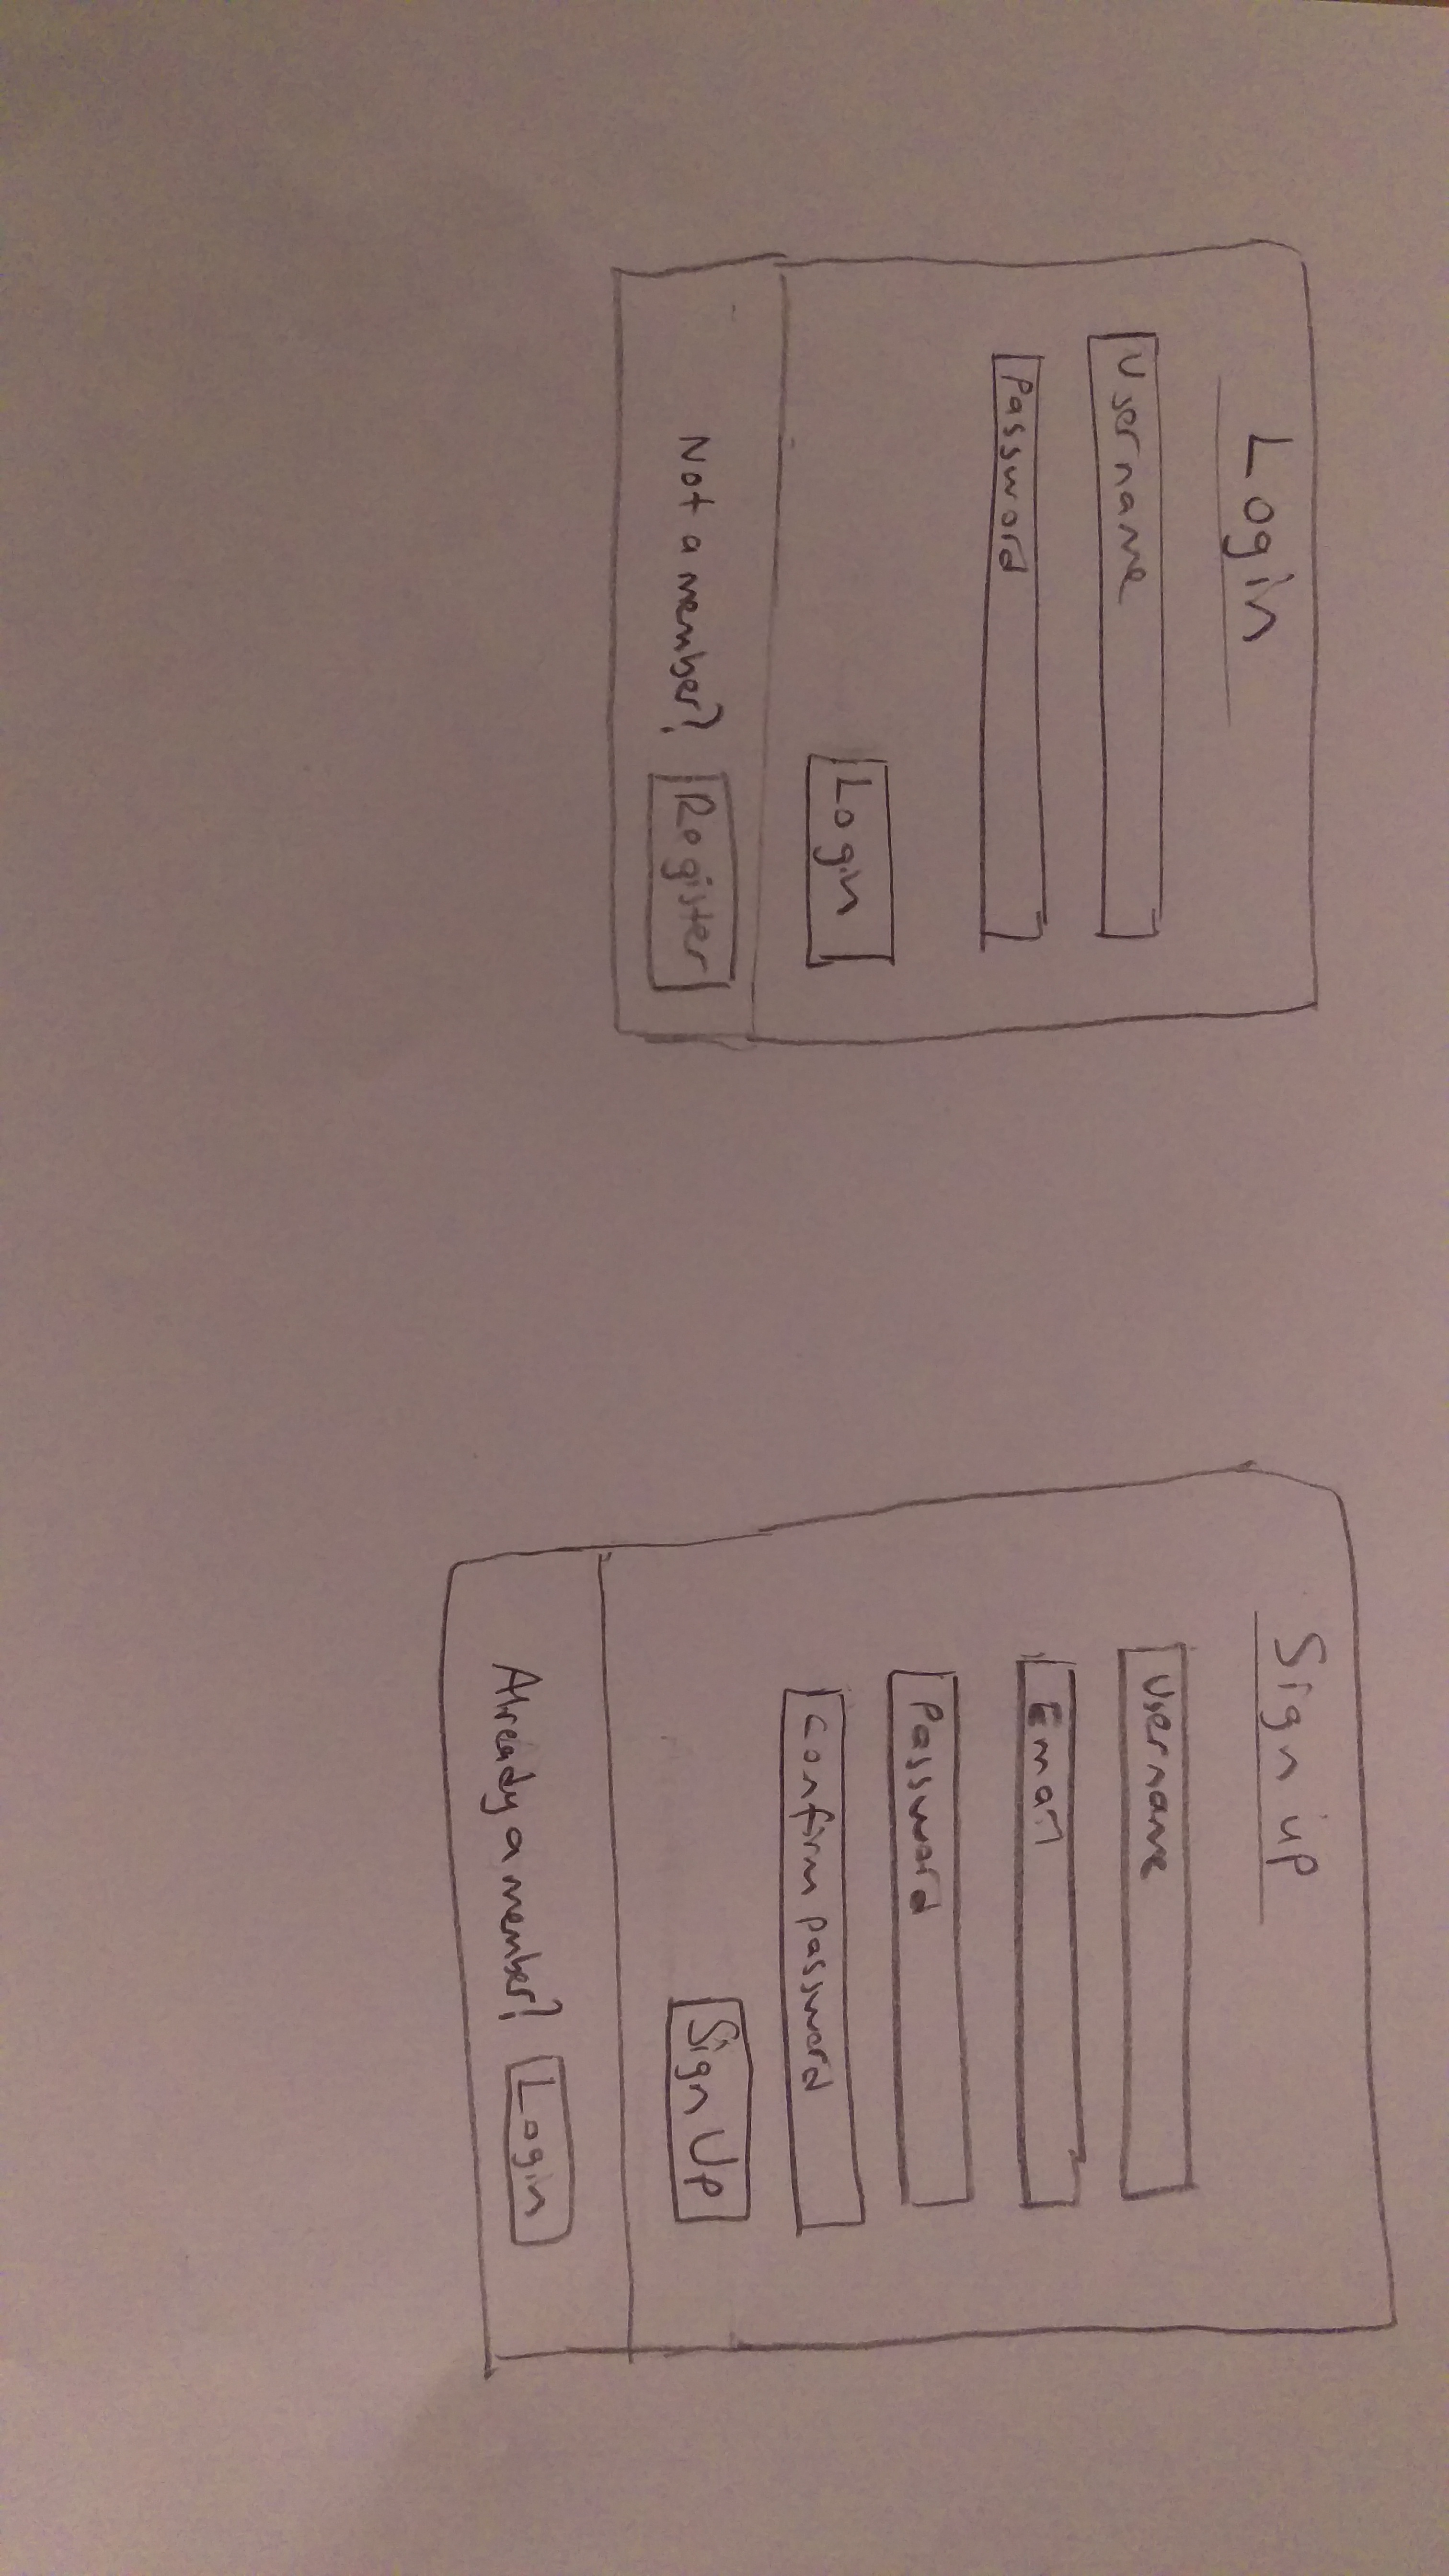 Login
Username
Password
Login
Not a member? Register
Sign up
Username
Email
Password
Confirm password
Sign Up
Already a member? Login